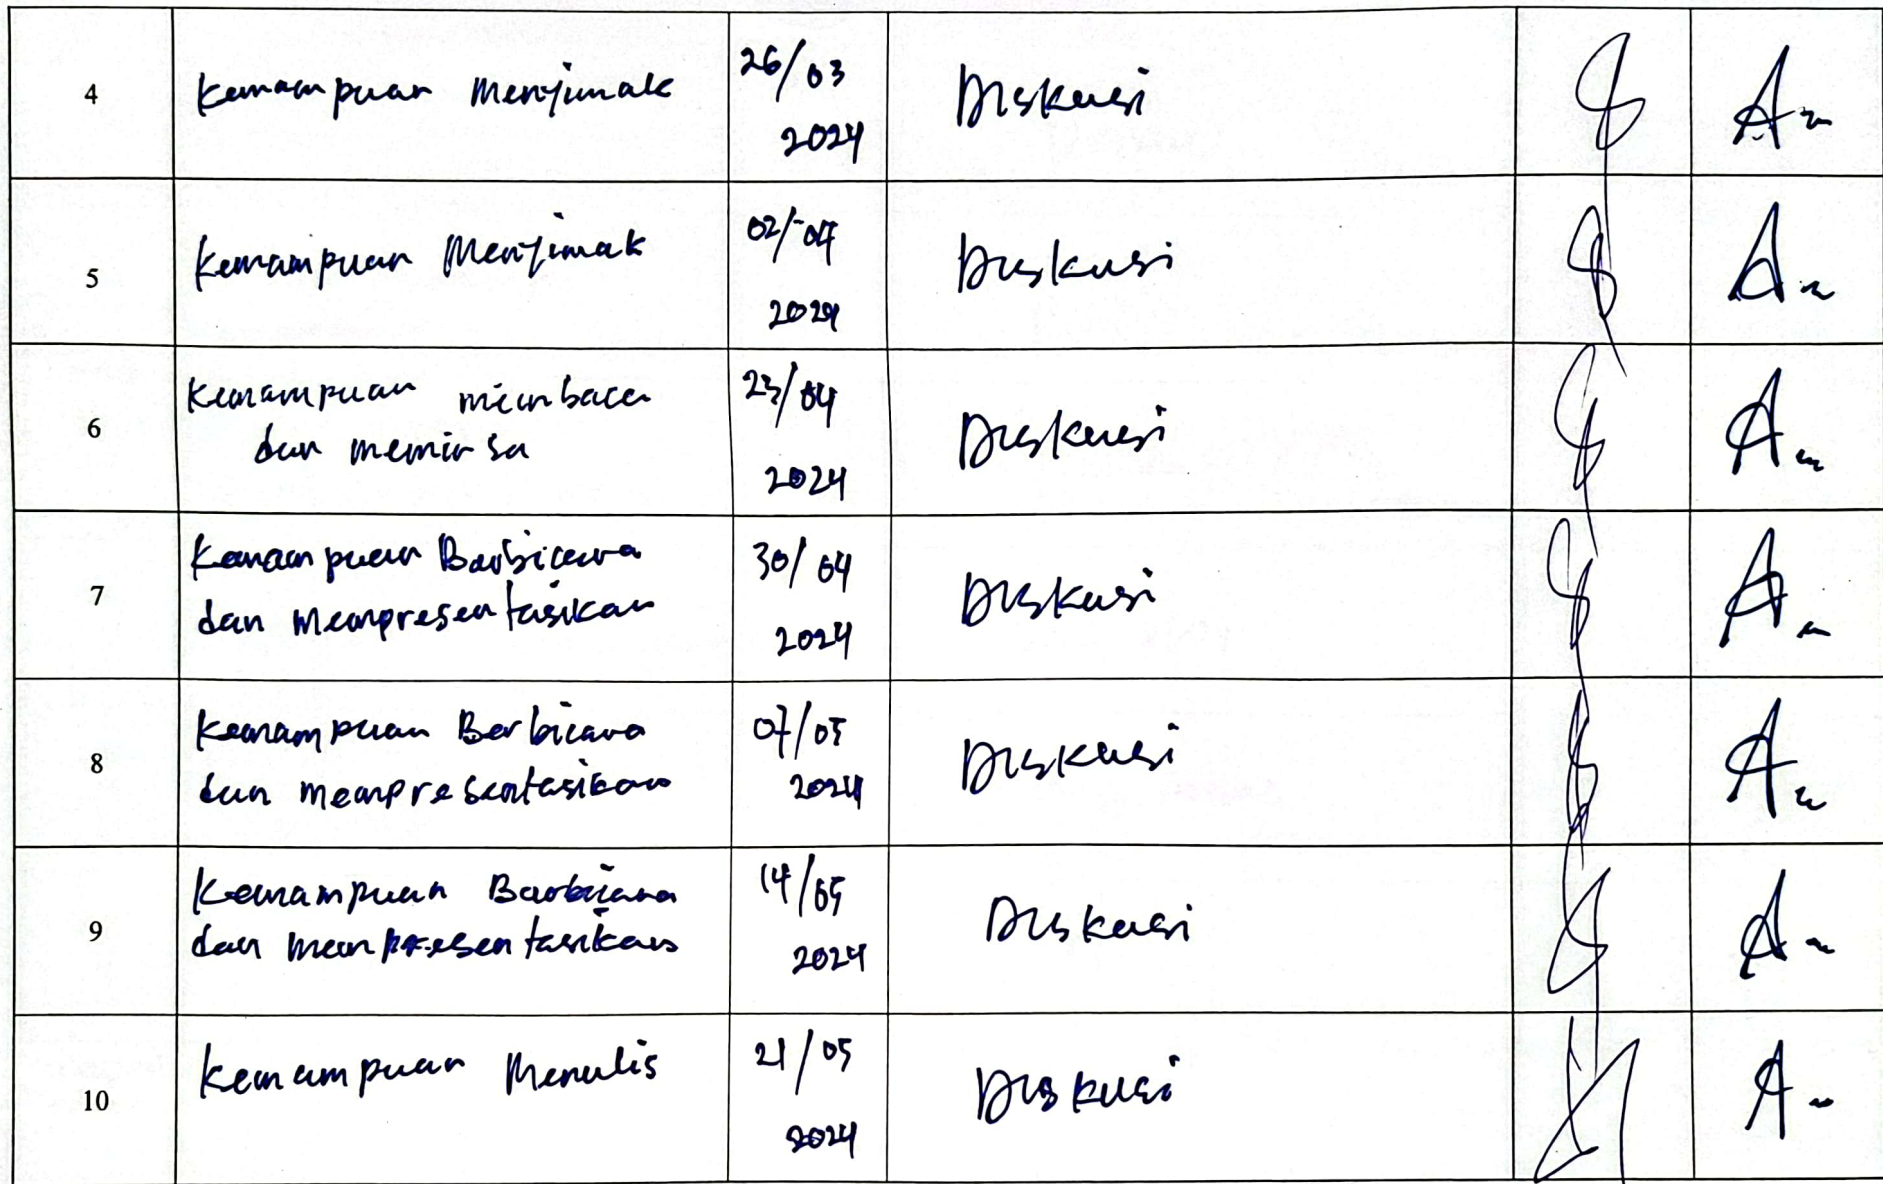 4 Kemampuan Menyimak 26/03 2024 Diskusi
5 Kemampuan Menyimak 02/04 2024 Diskusi
6 Kemampuan membaca 23/04
dan memirsa 2024 Diskusi
7 Kemampuan Berbicara 30/04
dan mempresentasikan 2024 Diskusi
8 Kemampuan Berbicara 07/05
dan mempresentasikan 2024 Diskusi
9 Kemampuan Berbicara 14/05
dan mempresentasikan 2024 Diskusi
10 Kemampuan Menulis 21/05 2024 Diskusi